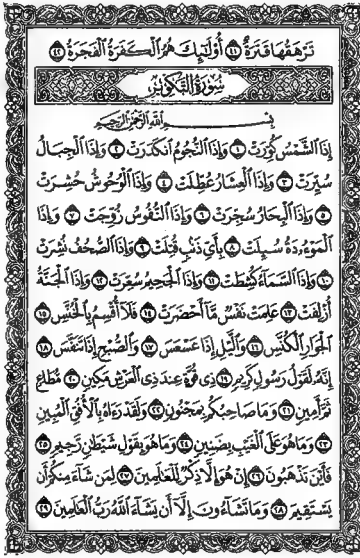 تَرْهَقُهَا قَتَرَةٌ ٤١ أُوْلَٰٓئِكَ هُمُ الْكَفَرَةُ الْفَجَرَةُ ٤٢
سُورَةُ التَّكْوِيرِ
بِسْمِ اللَّهِ الرَّحْمَٰنِ الرَّحِيمِ
إِذَا الشَّمْسُ كُوِّرَتْ ١ وَإِذَا النُّجُومُ انكَدَرَتْ ٢ وَإِذَا الْجِبَالُ
سُيِّرَتْ ٣ وَإِذَا الْعِشَارُ عُطِّلَتْ ٤ وَإِذَا الْوُحُوشُ حُشِرَتْ
٥ وَإِذَا الْبِحَارُ سُجِّرَتْ ٦ وَإِذَا النُّفُوسُ زُوِّجَتْ ٧ وَإِذَا
الْمَوْءُۥدَةُ سُئِلَتْ ٨ بِأَيِّ ذَنۢبٍ قُتِلَتْ ٩ وَإِذَا الصُّحُفُ نُشِرَتْ
١٠ وَإِذَا السَّمَآءُ كُشِطَتْ ١١ وَإِذَا الْجَحِيمُ سُعِّرَتْ ١٢ وَإِذَا الْجَنَّةُ
أُزْلِفَتْ ١٣ عَلِمَتْ نَفْسٌ مَّآ أَحْضَرَتْ ١٤ فَلَآ أُقْسِمُ بِالْخُنَّسِ ١٥
الْجَوَارِ الْكُنَّسِ ١٦ وَالَّيْلِ إِذَا عَسْعَسَ ١٧ وَالصُّبْحِ إِذَا تَنَفَّسَ ١٨
إِنَّهُۥ لَقَوْلُ رَسُولٍ كَرِيمٍ ١٩ ذِي قُوَّةٍ عِندَ ذِي الْعَرْشِ مَكِينٍ ٢٠ مُّطَاعٍ
ثَمَّ أَمِينٍ ٢١ وَمَا صَاحِبُكُم بِمَجْنُونٍ ٢٢ وَلَقَدْ رَءَاهُ بِالْأُفُقِ الْمُبِينِ
٢٣ وَمَا هُوَ عَلَى الْغَيْبِ بِضَنِينٍ ٢٤ وَمَا هُوَ بِقَوْلِ شَيْطَٰنٍ رَّجِيمٍ ٢٥
فَأَيْنَ تَذْهَبُونَ ٢٦ إِنْ هُوَ إِلَّا ذِكْرٌ لِّلْعَالَمِينَ ٢٧ لِمَن شَآءَ مِنكُمْ أَن
يَسْتَقِيمَ ٢٨ وَمَا تَشَآءُونَ إِلَّآ أَن يَشَآءَ اللَّهُ رَبُّ الْعَالَمِينَ ٢٩